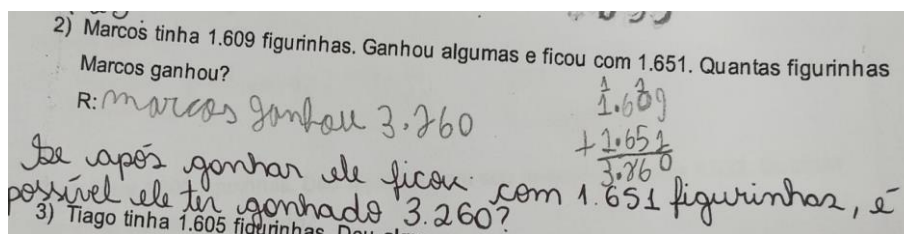 2) Marcos tinha 1.609 figurinhas. Ganhou algumas e ficou com 1.651. Quantas figurinhas
Marcos ganhou?
R: marcos ganhou 3.260
1 1
1.609
+ 1.651
3.260
Se após ganhar ele ficou com 1.651 figurinhas, é
possível ele ter ganhado 3.260?
3) Tiago tinha 1.605 figurinhas.